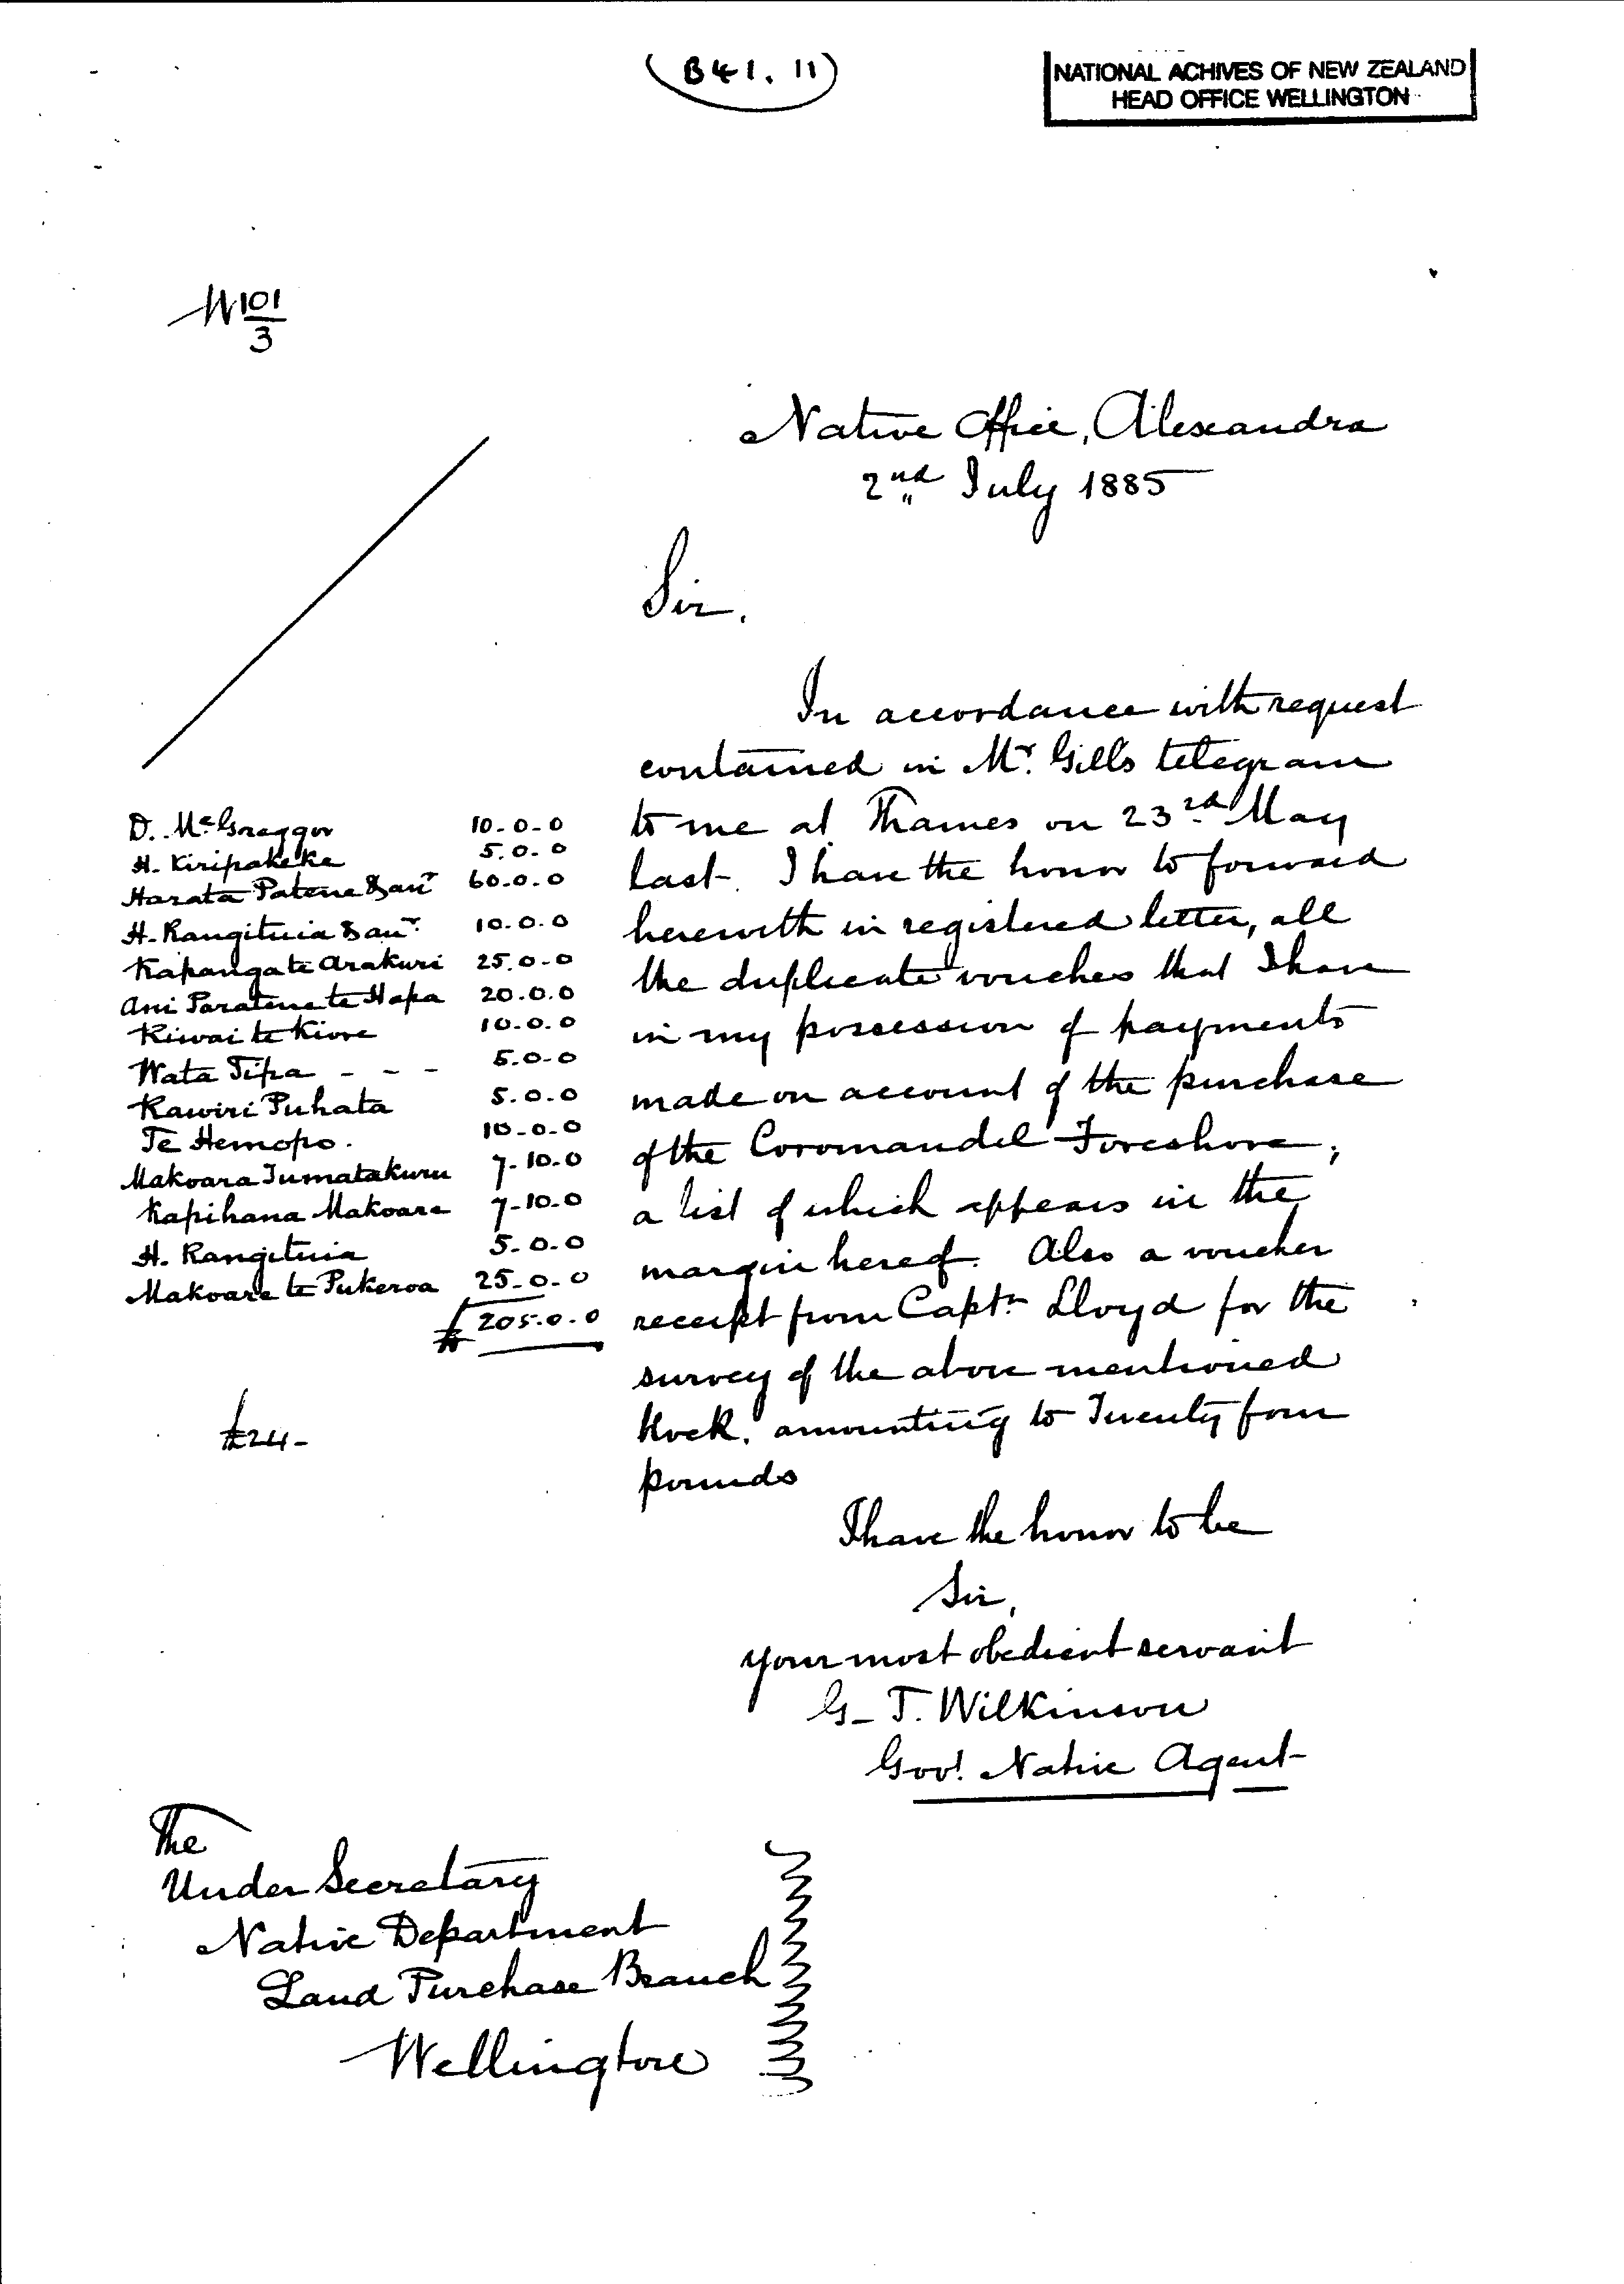 (B41. 11)
NATIONAL ACHIVES OF NEW ZEALAND
HEAD OFFICE WELLINGTON
N 101/3
Native Office, Alexandra
2nd July 1885
Sir,
In accordance with request
contained in Mr. Gill's telegram
to me at Thames on 23rd May
last. I have the honor to forward
herewith in registered letter, all
the duplicate vouches that I have
in my possession of payments
made on account of the purchase
of the Coromandel Foreshore,
a list of which appears in the
margin hereof. Also a voucher
receipt from Captn Lloyd for the
survey of the above mentioned
block, amounting to Twenty four
pounds
D. McGreggor 10-0-0
H. Kiripakeke 5.0.0
Harata Patene & anr 60.0.0
H. Rangituia & anr. 10.0.0
Kapanga te Arakuri 25.0.0
Ani Paratene te Hapa 20.0.0
Kiwai te Kiore 10.0.0
Wata Tipa - - - 5.0.0
Rawiri Puhata 5.0.0
Te Hemopo. 10-0-0
Makoara Tumatakuru 7-10.0
Kapihana Makoare 7-10.0
H. Rangituia 5-0.0
Makoare te Pukeroa 25-0-0
£ 205.0.0
£24-
I have the honor to be
Sir,
your most obedient servant
G. T. Wilkinson
Govt. Native Agent
The
Under Secretary
Native Department
Land Purchase Branch
Wellington